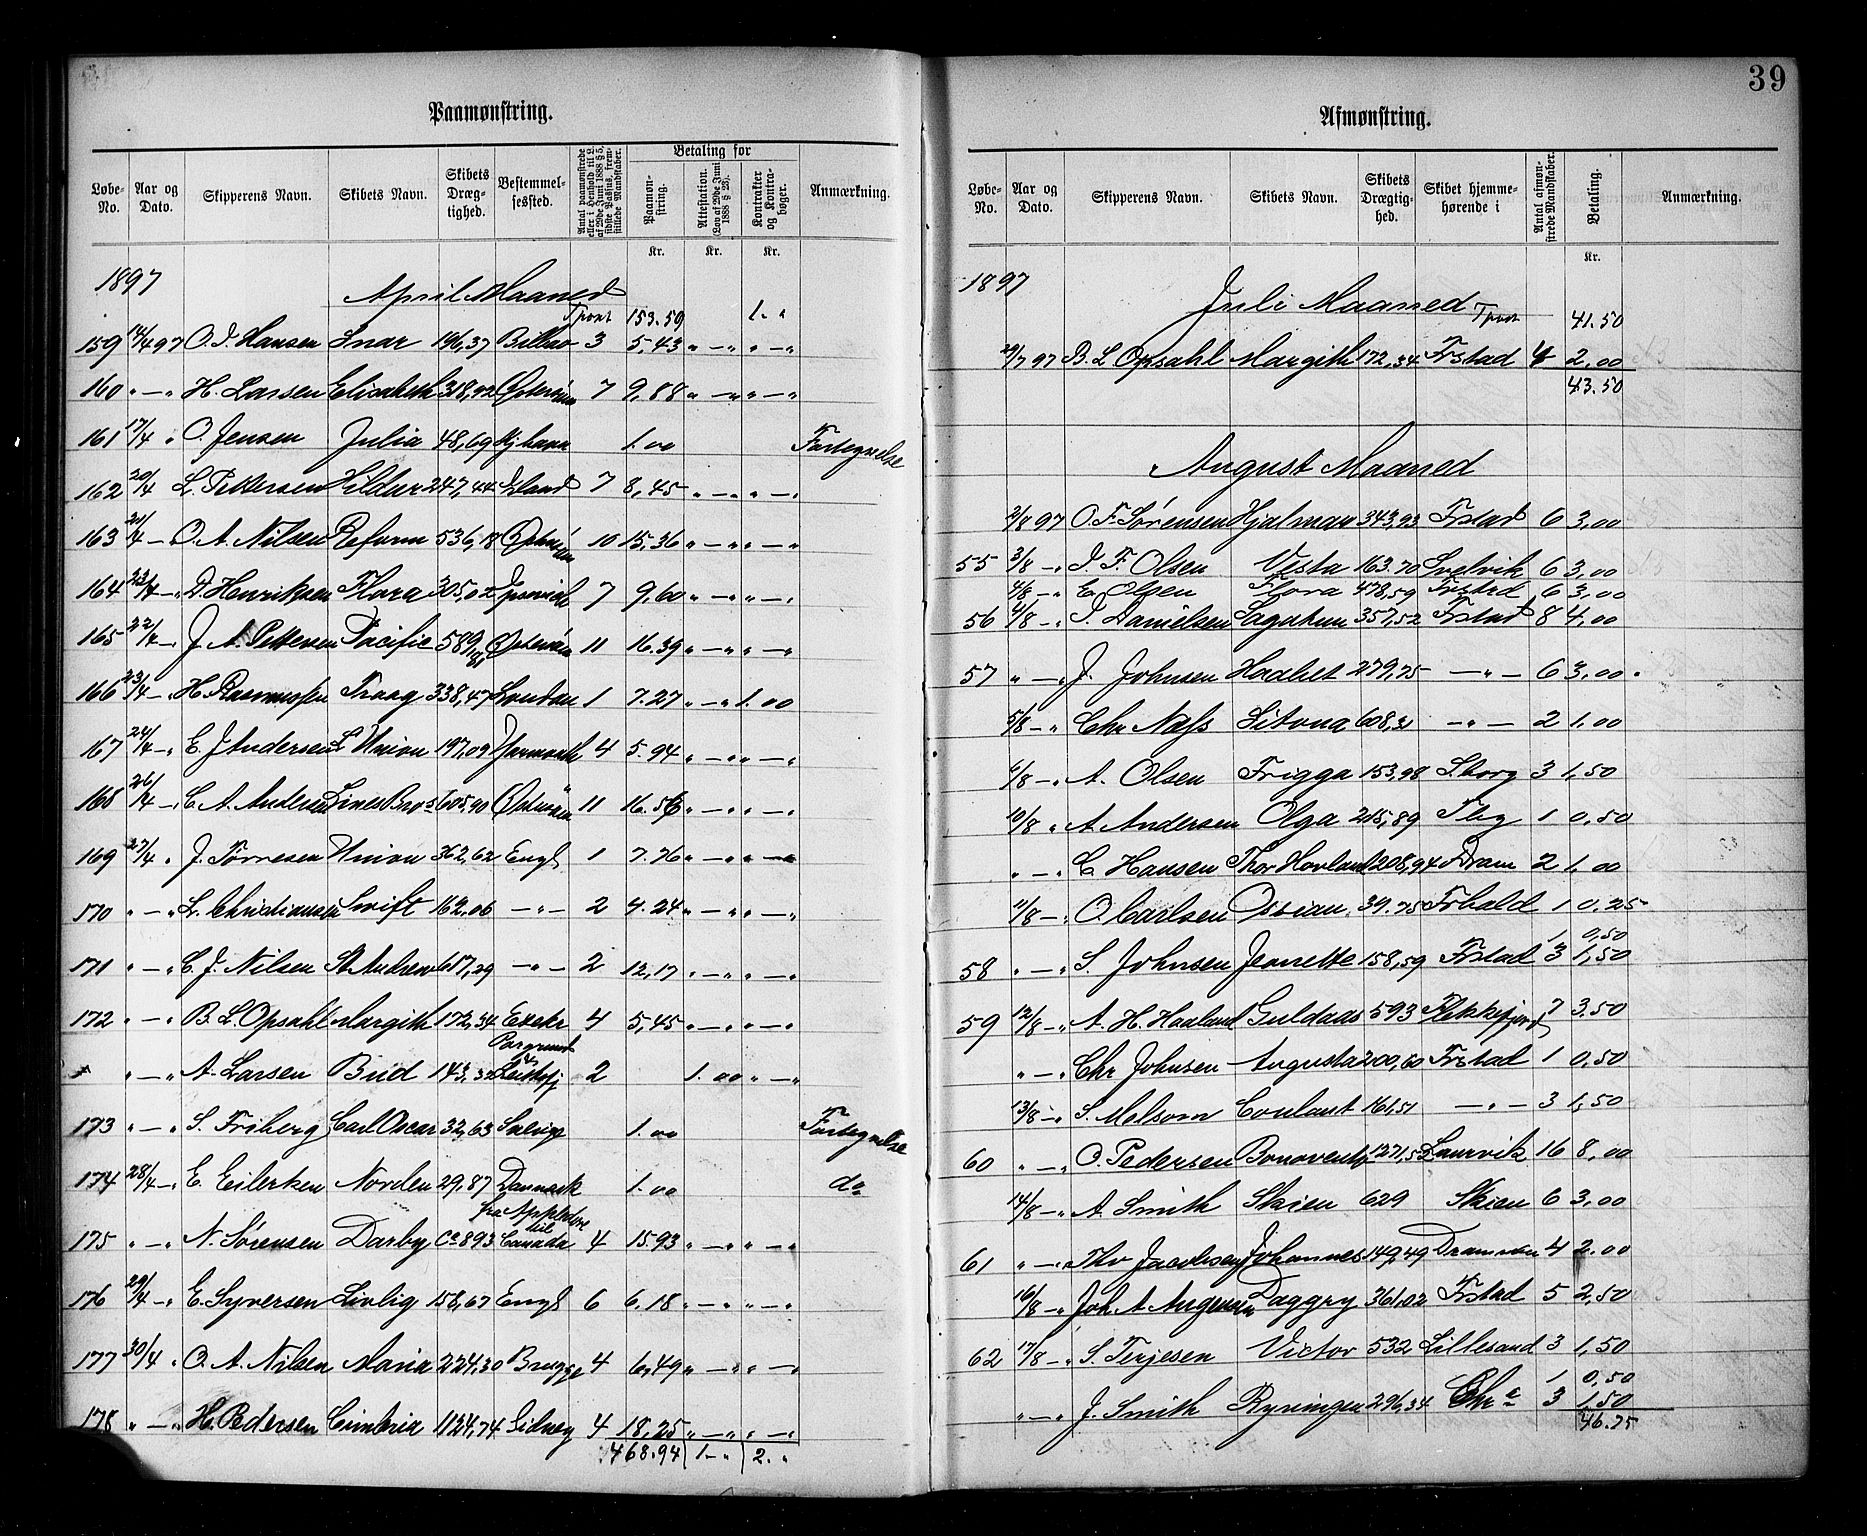 39
Paamønstring.
Løbe-No. Aar og Dato. Skipperens Navn. Skibets Navn. Skibets Dræg-tighed. Bestemmel-sessted. Antal paamønstrede eller i Henhold til L. af 29de Juni 1888 § 5, sidste Passus, frem-stillede Mandskaber. Betaling for Paamøn-string. Attestation. (Lov af 29de Juni 1888 § 23). Kontrakter og Kontra-bøger. Anmærkning.
Kr. Kr. Kr.
1897
April Maaned
Tport 153.59 1. "
159 14/4 97 O. J. Hansen Snar 196,37 Bilbao 3 5,43 " — " " — "
160 " — " H. Larsen Elisabeth 318,92 7 9,88 " — " " — "
161 17/4 " O. Jensen Julia 48,69 Kjhavn 1.00 Fortegnelse
162 20/4 L. Pettersen Hildur 247,44 Island 7 8,45 " — " " — "
163 21/4 — " O. A. Nilsen Reform 536,18 10 15,36 " — " " — "
164 23/4 — " D. Henriksen Flora 305,02 Ipswich 7 9,60 " — " " — "
165 22/4 — " J. A. Pettersen Pacific 589,81 Østersøen 11 16.39 " — " " — "
166 23/4 — " H. Rasmussen Traag 338,47 London 1 7.27 " — " 1.00
167 24/4 — " E. J. Andersen L Union 197,09 Yarmouth 4 5.94 " — " " — "
168 26/4 — " C. A. Andersen Lines Bros 605,90 Østersøen 11 16.56 " — " " — "
169 27/4 " J. Törresen Union 362,62 Engl 1 7.76 " — " " — "
170 " — " L. Christiansen Swift 162.06 — " — 2 4.24 " — " " — "
171 " — " C. J. Nilsen St Andrew 617,29 — " — 2 12,17 " — " " — "
172 " — " B. L. Opsahl Margith 172,34 Exeter 4 5,45 " — " " — "
" — " A. Larsen Bud 143,37 Porgrund 2 1.00 " — "
173 " — " S. Friberg Carl Oscar 32,63 Sverige 1.00 Fortegnelse
174 28/4 — " E. Eilerken Norden 29.87 Danmark 1.00 do
fra Appledore til
175 " — " N. Sørensen Darby Ca 893 Canada 4 15.93 " — " " — "
176 29/4 — " E. Syversen Livlig 158,67 Engl 6 6.18 " — " " — "
177 30/4 " O. A. Nilsen Maria 224,30 Brugge 4 6,49 " — " " — "
178 " — " H. Pedersen Cimbria 1124,74 Sidney 4 18,25 " — " " — "
468.94 1 — " 2. "
Afmønstring.
Løbe-No. Aar og Dato. Skipperens Navn. Skibets Navn. Skibets Drægtig-hed. Skibet hjemme-hørende i Antal afmøn-strede Mandskaber. Betaling. Anmærkning.
Kr.
1897
Juli Maaned
Tport 41.50
29/7 97 B. L. Opsahl Margith 172,34 Frstad 4 2,00
43.50
August Maaned
2/8 97 O. F. Sørensen Hjalmar 343,93 Frstad 6 3,00
55 3/8 — " J. F. Olsen Vesta 163.70 Svelvik 6 3,00
4/8 — " E Olsen Flora 478,59 Frstad 6 3,00
56 4/8 — " J. Danielsen Sagatun 357,52 Frstad 8 4,00
57 " — " J. Johnsen Haabet 279,75 — " — 6 3,00
5/8 — " Chr Næss Sitona 608,31 — " — 2 1,00
6/8 — " A. Olsen Frigga 153,98 S.borg 3 1,50
10/8 " A Andersen Olga 215,89 Tbg 1 0,50
" — " C Hansen Thor Hovland 208,94 Dram 2 1,00
11/8 — " O Carlsen Ossian 39.75 Frhald 1 0,25
1 0,50
58 " — " S. Johnsen Jeanette 158,59 Frstad 3 1,50
59 12/8 — " A. H. Haaland Guldaas 593 Flekkefjord 7 3.50
" — " Chr Johnsen Augusta 200,60 Frstad 1 0,50
13/8 — " S. Melsom Coulant 161,51 — " — 3 1,50
60 " — " O. Pedersen Bonoventa 1271,5 Laurvik 16 8,00
14/8 — " A. Smith Skien 629 Skien 6 3,00
61 " — " Thv Jacobsen Johannes 149,49 Drammen 4 2.00
16/8 — " Joh A Daggry 361,02 Frstad 5 2,50
62 17/8 — " S. Terjesen Victor 532 Lillesand 3 1,50
1 0,50
" — " J. Smith Ryningen 296,34 Chr a 3 1,50
46.75